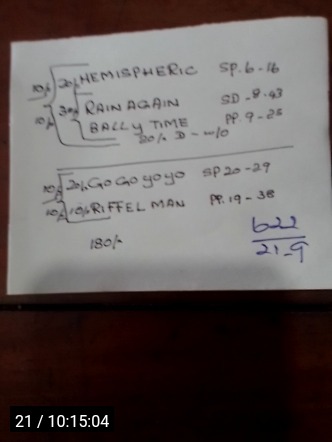 10/- 20/- HEMISPHERIC SP. 6-16
10/- 30/- RAIN AGAIN SD - 8-43
BALLY TIME PP. 9-25
20/- D - W/O
10/- 20/- GO GO yo yo SP 20-29
10/- 10/- RIFFEL MAN PP. 19-38
180/-
622
21-9
21 / 10:15:04